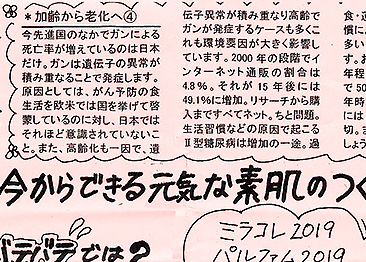 ＊加齢から老化へ④
今先進国のなかでガンによる
死亡率が増えているのは日本
だけ。ガンは遺伝子の異常が
積み重なることで発症します。
原因としては、がん予防の食
生活を欧米では国を挙げて啓
蒙しているのに対し、日本では
それほど意識されていないこ
と。また、高齢化も一因で、遺
伝子異常が積み重なり高齢で
ガンが発症するケースも多くこ
れも環境要因が大きく影響し
ています。2000年の段階でイ
ンターネット通販の割合は
4.8％。それが15年後には
49.1％に増加。リサーチから購
入まですべてネット。ちと問題。
生活習慣などの原因で起こる
Ⅱ型糖尿病は増加の一途。過
食・
慣
多
お
年
で50
年時
には
切。
しょう
今からできる元気な素肌のつく
バテバテでは？
ミラコレ2019
パルファム2019